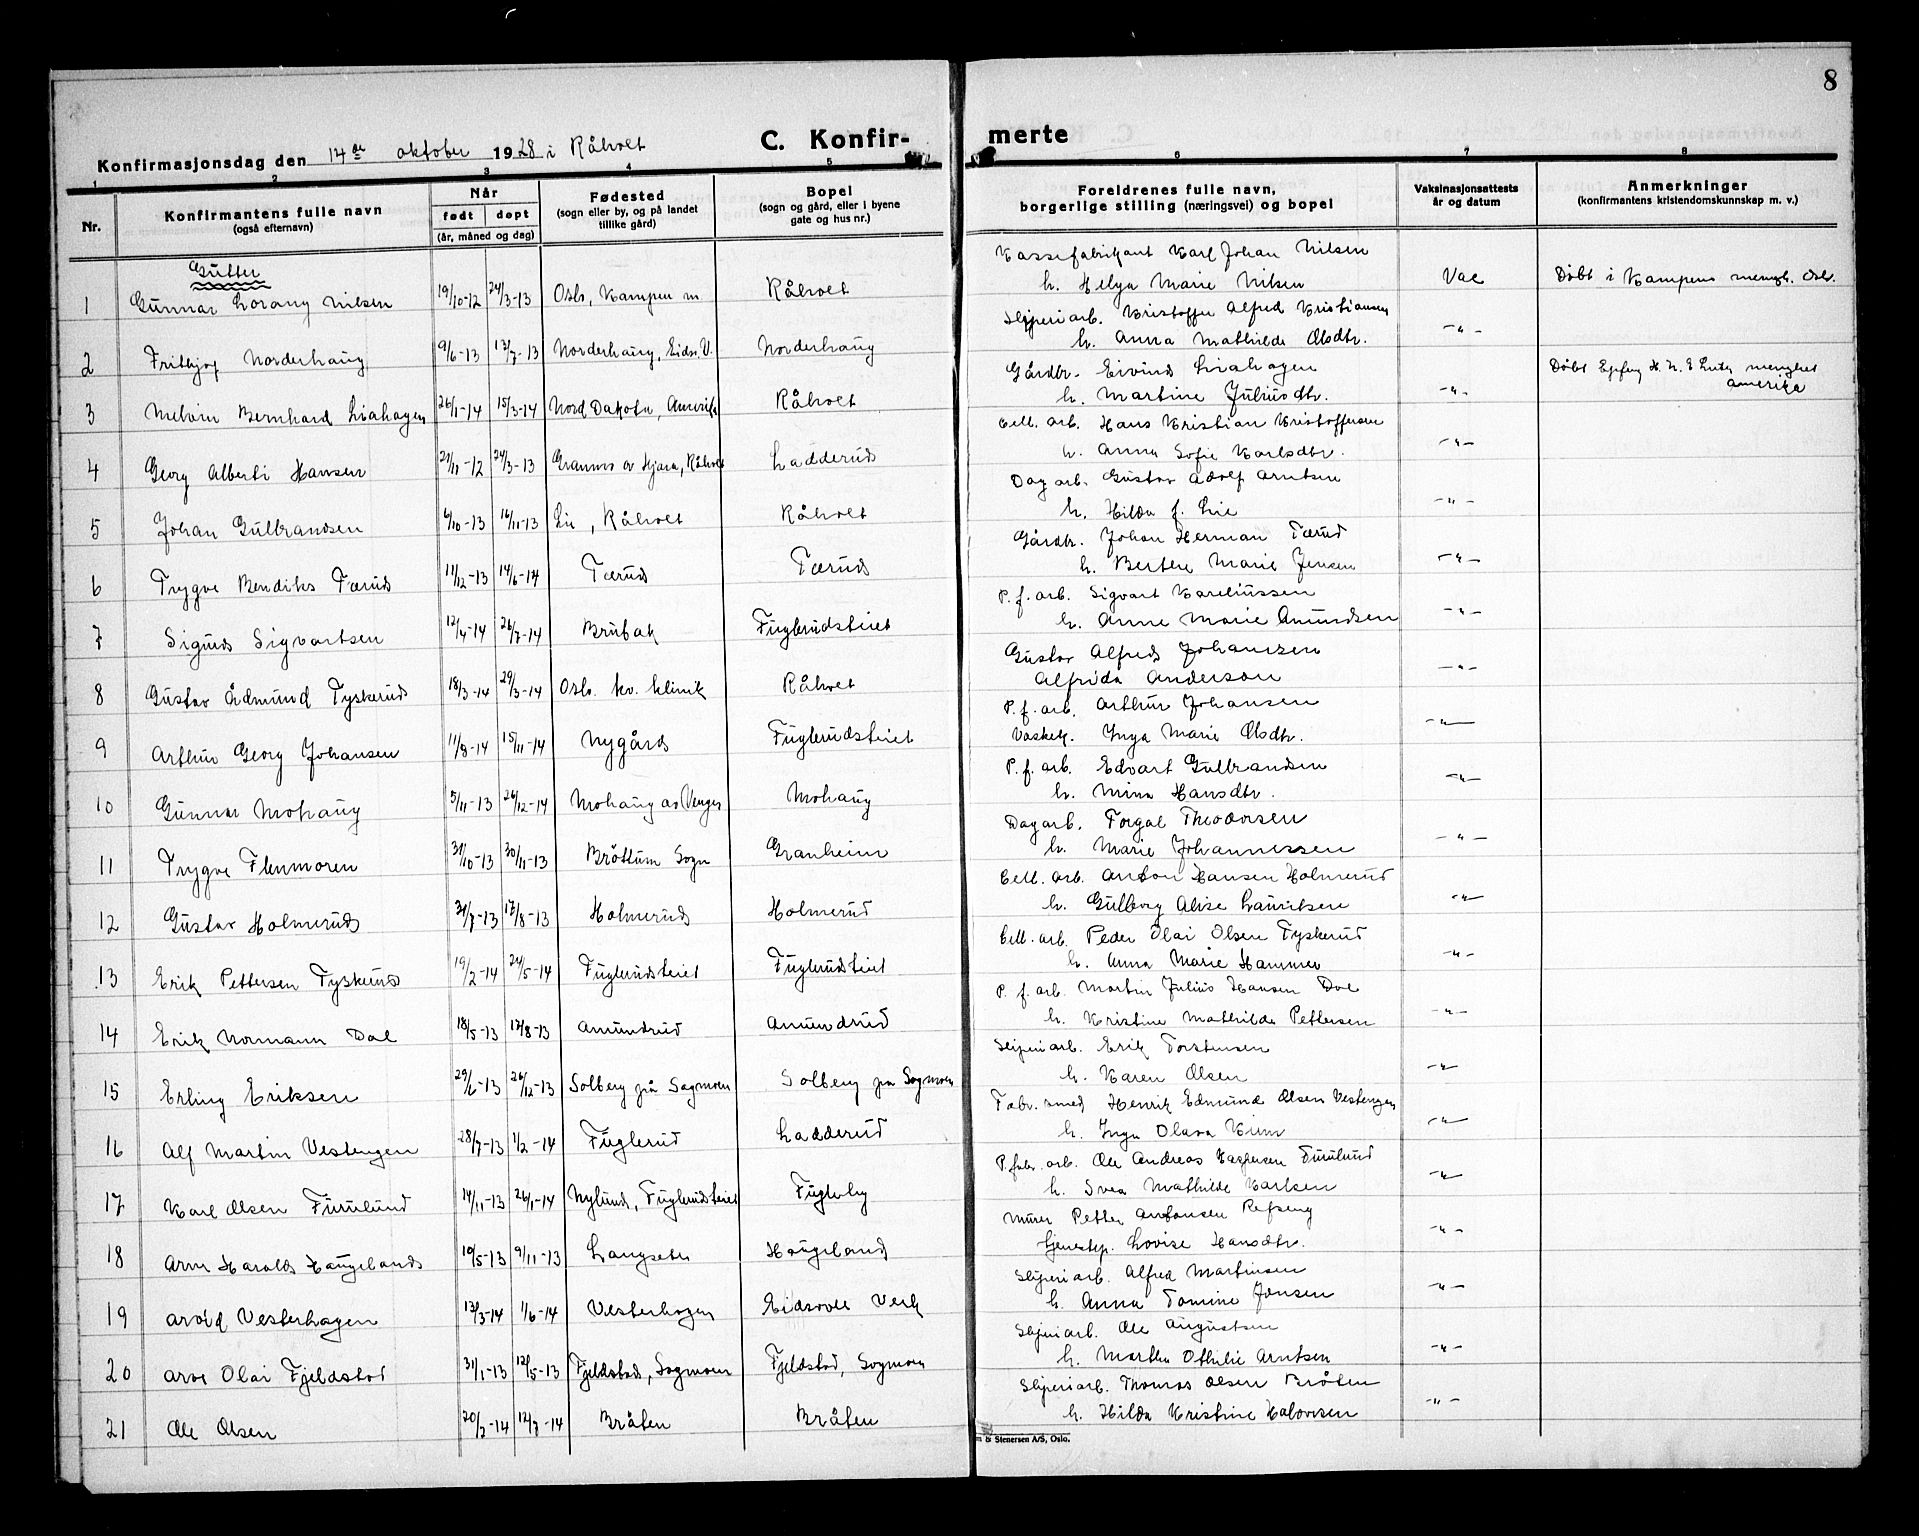 8
Konfirmasjonsdag den 14de oktober 1928 i Råholt
C. Konfirmerte
1 2 3 4 5 6 7 8
Nr.
Konfirmantens fulle navn
(også efternavn)
Når
født døpt
(år, måned og dag)
Fødested
(sogn eller by, og på landet
tillike gård)
Bopel
(sogn og gård, eller i byene
gate og hus nr.)
Foreldrenes fulle navn,
borgerlige stilling (næringsvei) og bopel
Vaksinasjonsattests
år og datum
Anmerkninger
(konfirmantens kristendomskunnskap m. v.)
Gutter
1 Gunnar Lorang Nilsen 19/10-12 24/3-13 Oslo, Kampen m. Råholt Kassefabrikant Karl Johan Nilsen
h. Helga Marie Nilsen Vac Døbt i Kampens mengh. Oslo.
2 Fritbjof Norderhaug 9/6-13 13/7-13 Norderhaug, Eidsv. V. Norderhaug Sliperiarb. Kristoffer Alfred Kristiansen
h. Anna Mathilde Olsdtr. -"-
3 Melvin Bernhard Liahagen 26/1-14 15/3-14 Nord Dakota, Amerika Råholt Gårdbr. Eivind Liahagen
h. Martine Juliusdtr. -"- Døbt H. N. E Luth menghet
Amerika
4 Georg Alberti Hansen 21/11-12 24/3-13 Granmo av Hjera, Råholt Ladderud Cell. arb. Hans Kristian Kristoffersen
h. Anna Sofie Karlsdtr. -"-
5 Johan Gulbrandsen 6/10-13 16/11-13 Lie, Råholt Råholt Dagarb. Gustav Adolf Arntsen
h. Hilda f. Lie -"-
6 Trygve Bendiks Tærud 11/12-13 14/6-14 Tærud Tærud Gårdbr. Johan Herman Tærud
h. Berthe Marie Jensen -"-
7 Sigurd Sigvartsen 12/4-14 26/7-14 Brubak Fuglerudsteiet P. f. arb. Sigvart Kareliussen
h. Anne Marie Amundsen -"-
8 Gustav Ædmund Tyskerud 18/3-14 29/3-14 Oslo. kv. klinik Råholt Gustav Alfred Johansen
Alfrida Anderson -"-
9 Arthur Georg Johansen 11/8-14 15/11-14 Nygård Fuglerudsteiet P. f. arb. Arthur Johansen
Vaskek. Inga Marie Olsdtr. -"-
10 Gunnar Mohaug 5/11-13 26/12-14 Mohaug av Venger Mohaug P. f. arb. Edvart Gulbrandsen
h. Mina Hansdtr. -"-
11 Trygve Flenmoren 31/10-13 30/11-13 Brøttum Sogn Granheim Dagarb. Torgal Theodorsen
h. Marie Johannessen -"-
12 Gustav Holmerud 31/7-13 17/8-13 Holmerud Holmerud Cell. arb. Anton Hansen Holmerud
h. Gulborg Alise Lauritsen -"-
13 Erik Pettersen Tyskerud 19/2-14 24/5-14 Fuglerudsteiet Fuglerudsteiet Cell. arb. Peder Olai Olsen Tyskerud
h. Anna Marie Hammer -"-
14 Erik Normann Dal 18/5-13 17/8-13 Amundrud Amundrud P. f. arb. Martin Julius Hansen Dal
h. Kristine Mathilde Pettersen -"-
15 Erling Eriksen 29/6-13 26/12-13 Solberg på Sagmoen Solberg på Sogmoen Sliperiarb. Erik Torstensen
h. Karen Olsen -"-
16 Alf Martin Vestengen 28/7-13 1/2-14 Fuglerud Ladderud Fabr. smed Henrik Edmund Olsen Vestengen
h. Inga Olava Kum -"-
17 Karl Olsen Furulund 14/11-13 26/1-14 Nylund, Fuglerudsteiet Fugleby P. fabr. arb. Ole Andreas Kaspersen Furulund
h. Svea Mathilde Karlsen -"-
18 Arne Harald Haugeland 19/5-13 9/11-13 Langseter Haugeland Murer Petter Antonsen Refseng
tjenestep. Lovise Hansdtr. -"-
19 Arvid Vesterhagen 13/3-14 1/6-14 Vesterhagen Eidsvoll Verk Sliperiarb. Alfred Martinsen
h. Anna Tomine Jensen -"-
20 Arve Olai Fjeldstad 31/1-13 12/5-13 Fjeldstad, Sagmoen Fjeldstad, Sogmoen Sliperiarb. Ole Augustsen
h. Martha Othilie Arntsen -"-
21 Ole Olsen 20/2-14 12/7-14 Bråten Bråten Sliperiarb. Thomas Olsen Bråten
h. Hilda Kristine Halvorsen -"-
& Stenersen A/S, Oslo.